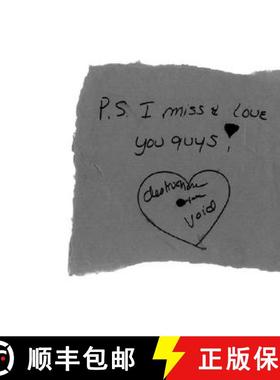 P.S. I miss & love
you guys!
Void
顺丰包邮
正版保障